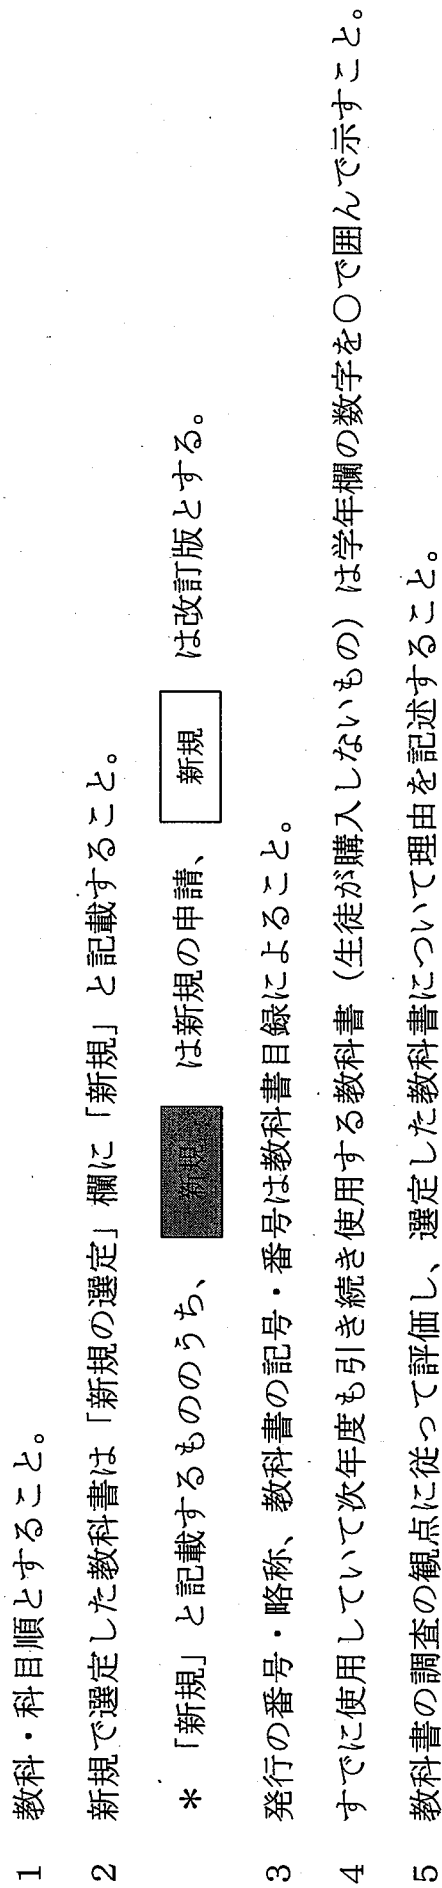 1 教科・科目順とすること。
2 新規で選定した教科書は「新規の選定」欄に「新規」と記載すること。
＊「新規」と記載するもののうち、 新規 は新規の申請、 新規 は改訂版とする。
3 発行の番号・略称、教科書の記号・番号は教科書目録によること。
4 すでに使用していて次年度も引き続き使用する教科書（生徒が購入しないもの）は学年欄の数字を〇で囲んで示すこと。
5 教科書の調査の観点に従って評価し、選定した教科書について理由を記述すること。